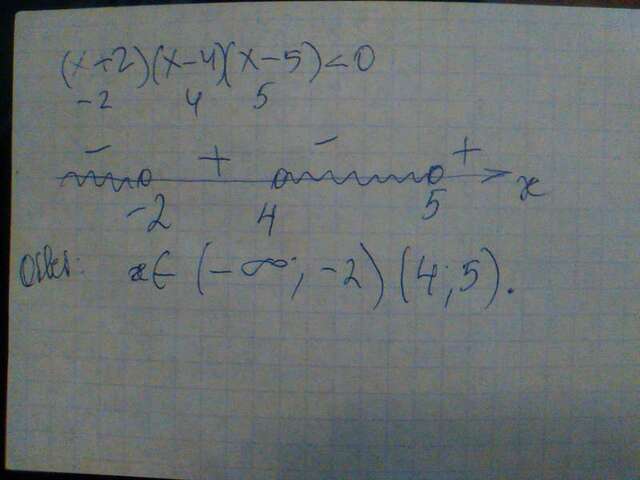 (x+2)(x-4)(x-5)<0
-2 4 5
- + - +
-2 4 5 x
Ответ: x∈ (-∞; -2) (4; 5).